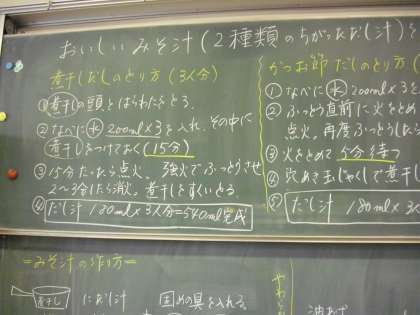 おいしいみそ汁(2種類のちがっただし汁)を
煮干しだしのとり方(3人分)
①煮干しの頭とはらわたをとる。
②なべに水200ml×3を入れ、その中に
煮干しをつけておく(15分)
③15分たったら点火。強火でふっとうさせ
2〜3分したら消火。煮干しをすくいとる
④だし汁 180ml×3人分=540ml完成
かつお節だしのとり方(
①なべに水200ml×3を
②ふっとう直前に火をとめ
点火。再度ふっとう
③火をとめて5分待つ
④
⑤だし汁 180ml×3
=みそ汁の作り方=
煮干し
にだし汁
固めの具を入れる
やわらか
油あげ